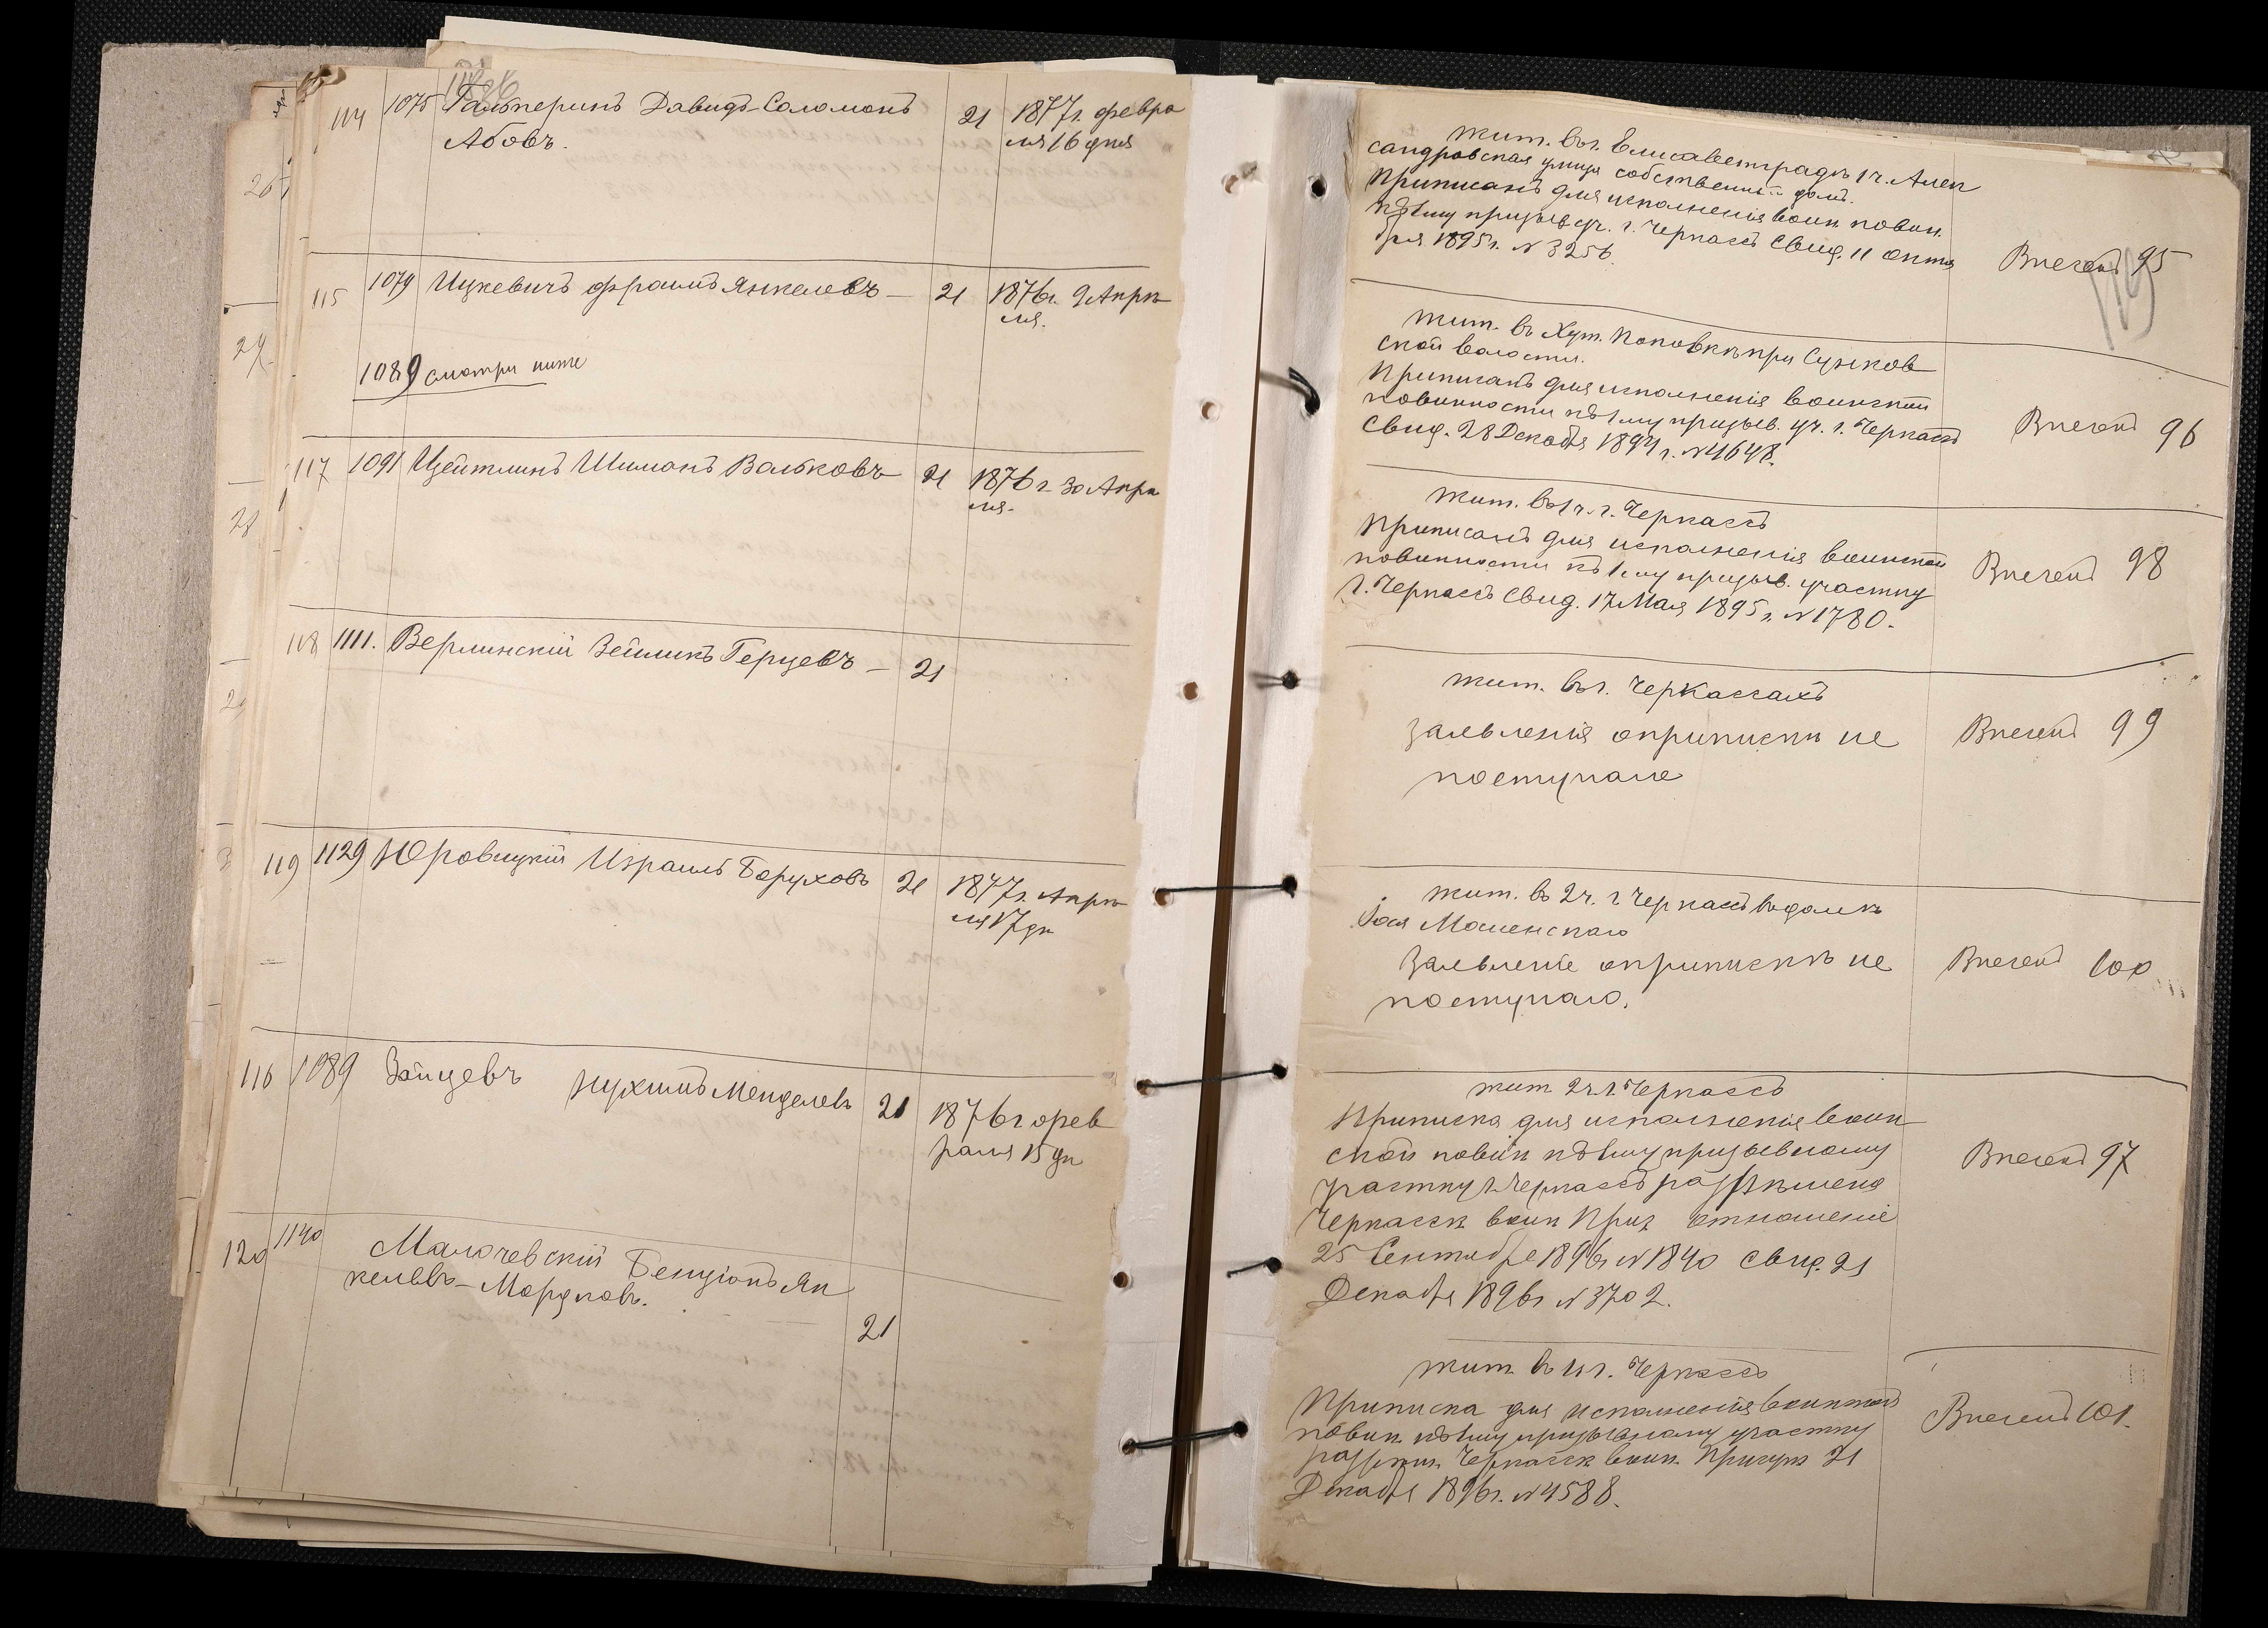 114 1075 Гальперинъ Давидъ-Соломонъ 21 1877 г. февра
Абовъ. ля 16 дня
115 1079 Ицкевичъ Фроимъ Янкелевъ — 21 1876 г. 9 Апрѣ
ля.
1089 смотри ниже
117 1091 Цейтлинъ Шимонъ Вольковъ 21 1876 г. 30 Апрѣ
ля.
118 1111. Верлинскій Зейликъ Герцевъ — 21
119 1129 Юровицкій Израиль Боруховъ 21 1877 г. Апрѣ
ля 17 дн
116 1089 Зайцевъ Нухимъ Менделевъ 21 1876 г фев
раля 15 дн
120 1140 Малочевскій Бенціонъ Ян
келевъ-Мордковъ.
21
жит. въ г. Елисаветградѣ 1 ч. Алек
сандровская улица собственный домъ.
Приписанъ для исполненія воин. повин.
къ 1му призыв. уч. г. Черкассъ Свид. 11 октя
бря 1895 г. № 3256.
Внесенъ 95
жит. въ Хут. Поповкѣ при Сунков
ской волости.
Приписанъ для исполненія воинской
повинности къ 1му призыв. уч. г. Черкассъ
Свид. 28 Декабря 1894 г. № 4648.
Внесенъ 96
жит. въ 1 ч. г. Черкассъ
Приписанъ для исполненія воинской
повинности къ 1му призыв. участку
г. Черкассъ Свид. 17 Мая 1895 г. № 1780.
Внесенъ 98
жит. въ г. Черкассахъ
Заявленія о припискѣ не
поступало
Внесенъ 99
жит. въ 2 ч. г. Черкассъ въ домѣ
Мошенскаго
Заявленіе о припискѣ не
поступало.
Внесенъ 100
жит 2 ч. г. Черкассъ
Приписка для исполненія воин
ской повин къ 1му призывному
участку г. Черкассъ разрѣшена
Черкасск воин Прис отношеніе
25 Сентября 1896 г № 1840 свид. 21
Декабря 1896 г № 3702.
Внесенъ 97
жит. въ 1 ч г. Черкассъ
Приписка для исполненія воинской
повин. къ 1му призывному участку
разрѣш. Черкасск воин. Присут 21
Декабря 1896 г. № 4588.
Внесенъ 101.